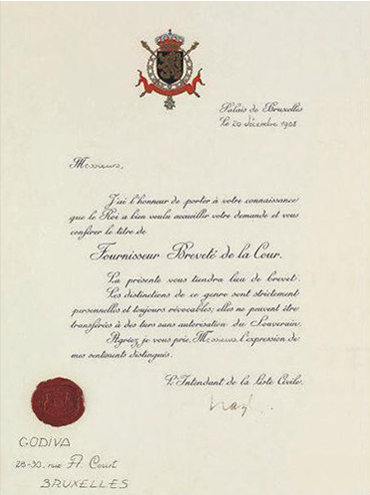 Palais de Bruxelles
Le 20 décembre 1968
Messieurs,
J'ai l'honneur de porter à votre connaissance
que le Roi a bien voulu accueillir votre demande et vous
conférer le titre de
Fournisseur Breveté de la Cour.
La présente vous tiendra lieu de brevet.
Les distinctions de ce genre sont strictement
personnelles et toujours révocables; elles ne peuvent être
transférées à des tiers sans autorisation du Souverain.
Agréez, je vous prie, Messieurs l'expression de
mes sentiments distingués.
L'Intendant de la Liste Civile.
GODIVA
28-30, rue A. Court
BRUXELLES